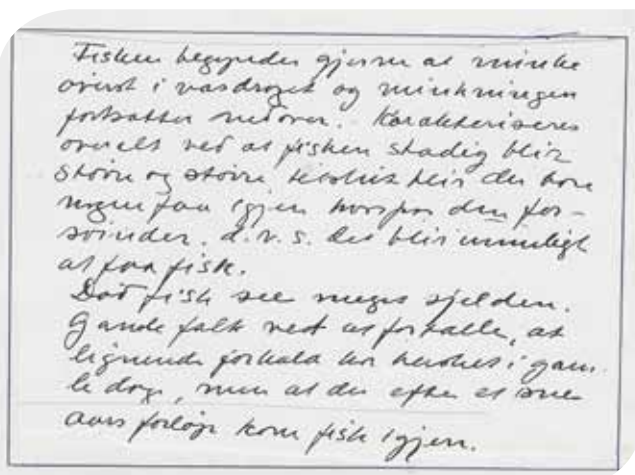 Fisken begynder gjerne at minke
øverst i vasdraget og minkningen
fortsætter nedover. Karakteriseres
overalt ved at fisken stadig blir
større og større tilslut blir der bare
nogen faa igjen hvorpaa den for-
svinder. d.v.s. det blir umuligt
at faa fisk.
Død fisk sees meget sjelden.
Gamle folk ved at fortælle, at
lignende forhold har hersket i gam-
le dage, men at der efter et
aars forløp kom fisk igjen.